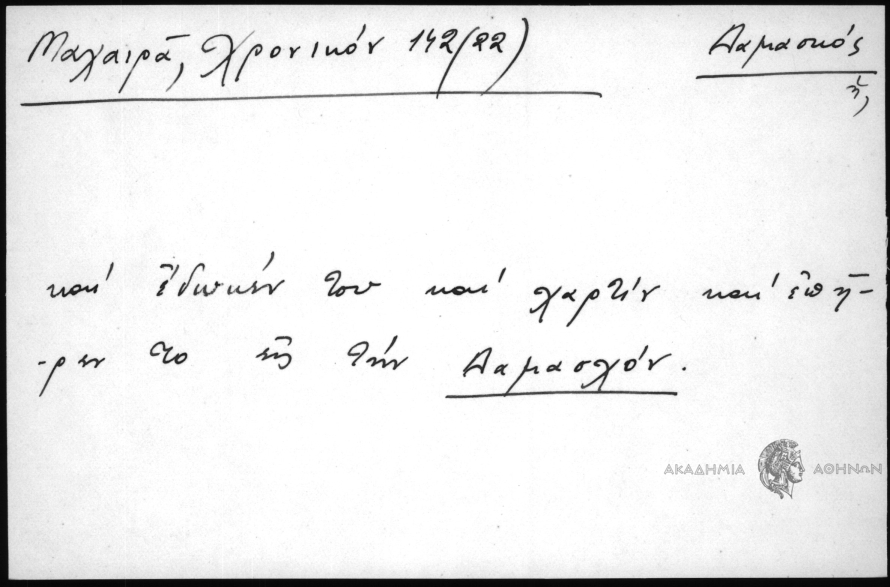 Μαχαιρᾶ, Χρονικόν 142(22)
Δαμασκός
ἡ,
καί ἔδωκέν του καί χαρτίν καί ἐπῆ-
-ρεν το εἰς τήν Δαμασχόν.
ΑΚΑΔΗΜΙΑ ΑΘΗΝΩΝ